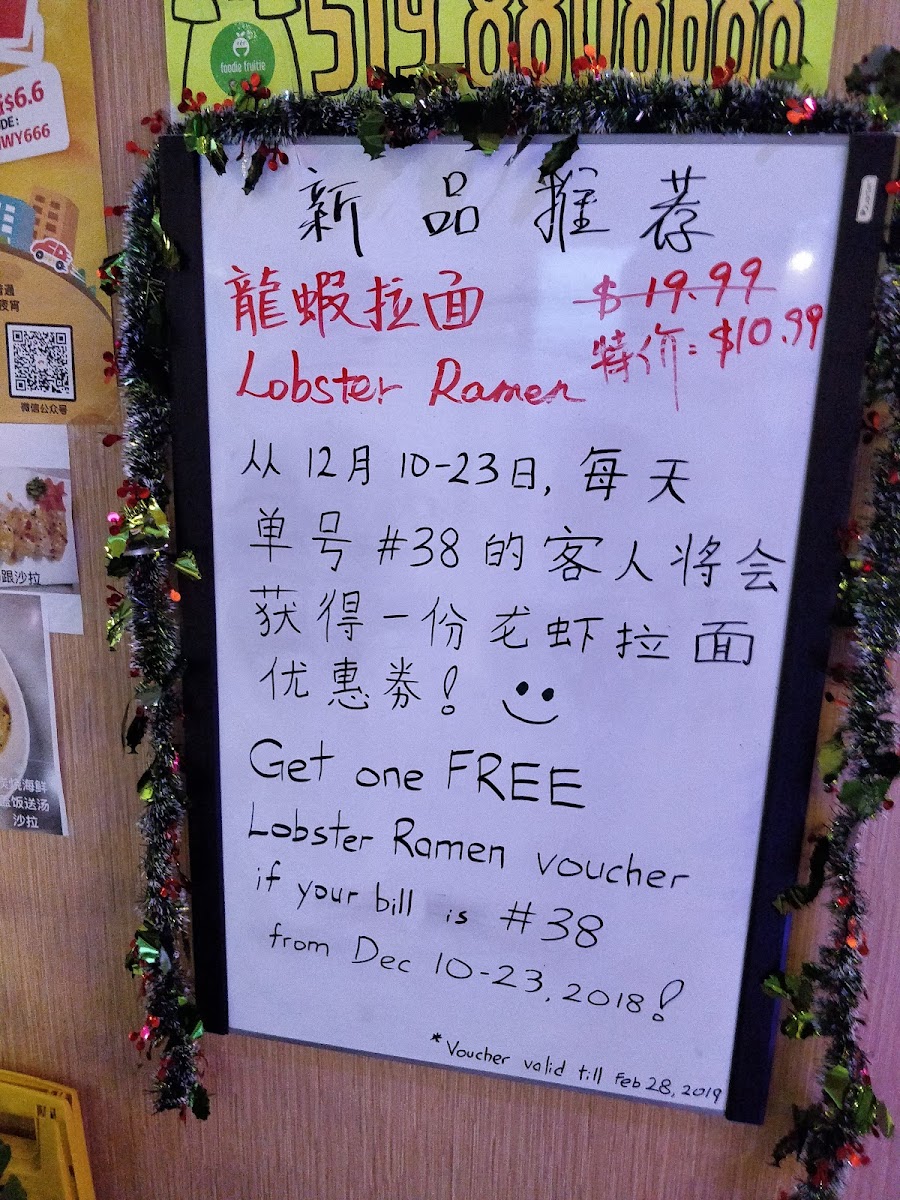 519 8808688
foodie fruitie
$6.6
DE:
WY666
微信公众号
跟沙拉
烧海鲜
盖饭送汤
沙拉
新品推荐
龍蝦拉面
$19.99
特价:$10.99
Lobster Ramen
从12月10-23日,每天
单号#38的客人将会
获得一份龙虾拉面
优惠券!
Get one FREE
Lobster Ramen voucher
if your bill is #38
from Dec 10-23, 2018!
*Voucher valid till Feb 28, 2019